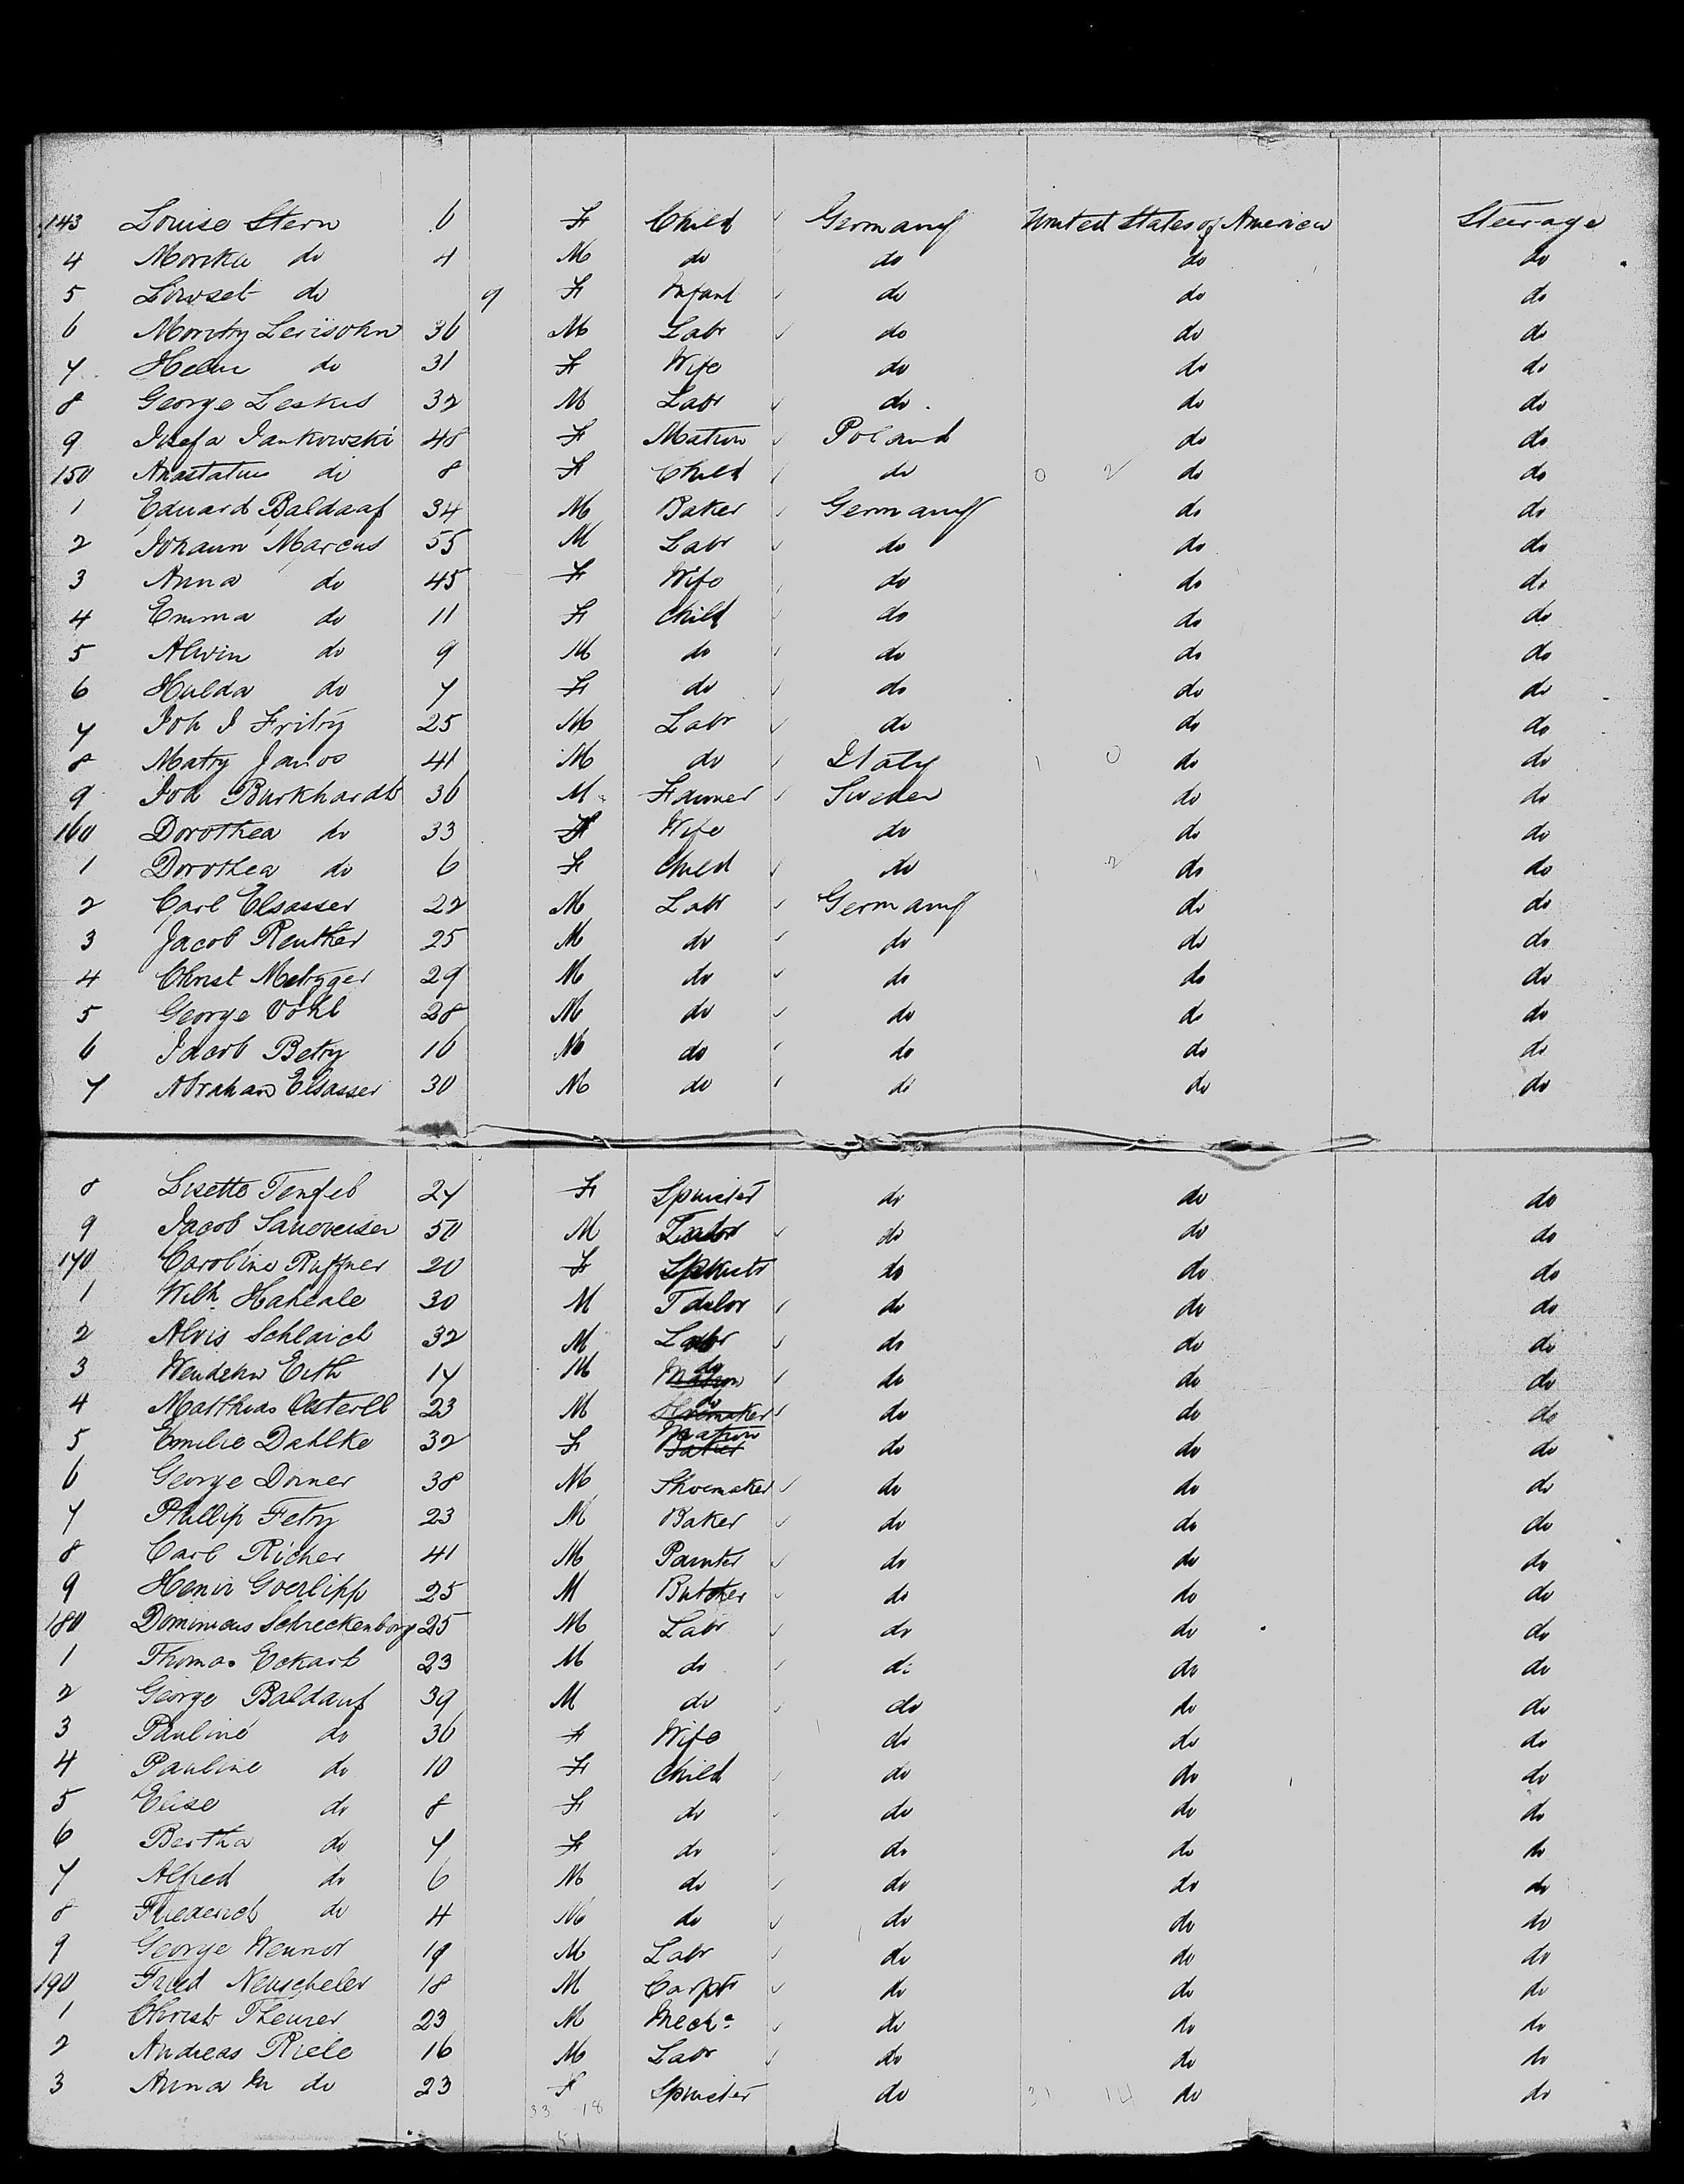 143 Louise Stern 6 F Child Germany United States of America Steerage
4 Monika do 4 M do do do do
5 do 9 F Infant do do do
6 Moritz Levisohn 36 M Labr do do do
7 Helene do 31 F Wife do do do
8 George Leskes 32 M Labr do do do
9 Josefa Jankowski 48 F Matron Poland do do
150 do 8 F Child do 0 2 do do
1 Eduard Baldaaf 34 M Baker Germany do do
2 Johann Marcus 55 M Labr do do do
3 Anna do 45 F Wife do do do
4 Emma do 11 F Child do do do
5 Alwin do 9 M do do do do
6 Hulda do 7 F do do do do
7 Joh J Fritz 25 M Labr do do do
8 Matty Janos 41 M do Italy 1 0 do do
9 Joh Burkhardt 36 M Farmer Sweden do do
160 Dorothea do 33 F Wife do do do
1 Dorothea do 6 F Child do 1 2 do do
2 Carl Elsasser 22 M Labr Germany do do
3 Jacob Reuther 25 M do do do do
4 Christ Metzger 29 M do do do do
5 George Vohl 28 M do do do do
6 Jacob Betz 16 M do do do do
7 Abraham Elsasser 30 M do do do do
8 Lisette Teufel 27 F Spinster do do do
9 Jacob 50 M do do do
170 Caroline 20 F do do do
1 Wilh. Haheale 30 M Tailor do do do
2 Alois Schlaich 32 M Labr do do do
3 Erth 17 M do do do do
4 Matthias Osterll 23 M do do do do
5 Emilie Dahlke 32 F Matron do do do
6 George Dorner 38 M Shoemaker do do do
7 Phillip Fetzy 23 M Baker do do do
8 Carl Richer 41 M Painter do do do
9 Henir Goerlipp 25 M Butcher do do do
180 Dominicus Schreckenborg 25 M Labr do do do
1 Thomas Eckart 23 M do do do do
2 George Baldauf 39 M do do do do
3 Pauline do 36 F Wife do do do
4 Pauline do 10 F Child do do do
5 Elise do 8 F do do do do
6 Bertha do 7 F do do do do
7 Alfred do 6 M do do do do
8 Friederich do 4 M do do do do
9 George Wennor 19 M Labr do do do
190 Fried Neuscheler 18 M Carptr do do do
1 Christ Theurer 23 M Mech. do do do
2 Andreas Riele 16 M Labr do do do
3 Anna M do 23 F Spinster do 31 14 do do
33 18
51